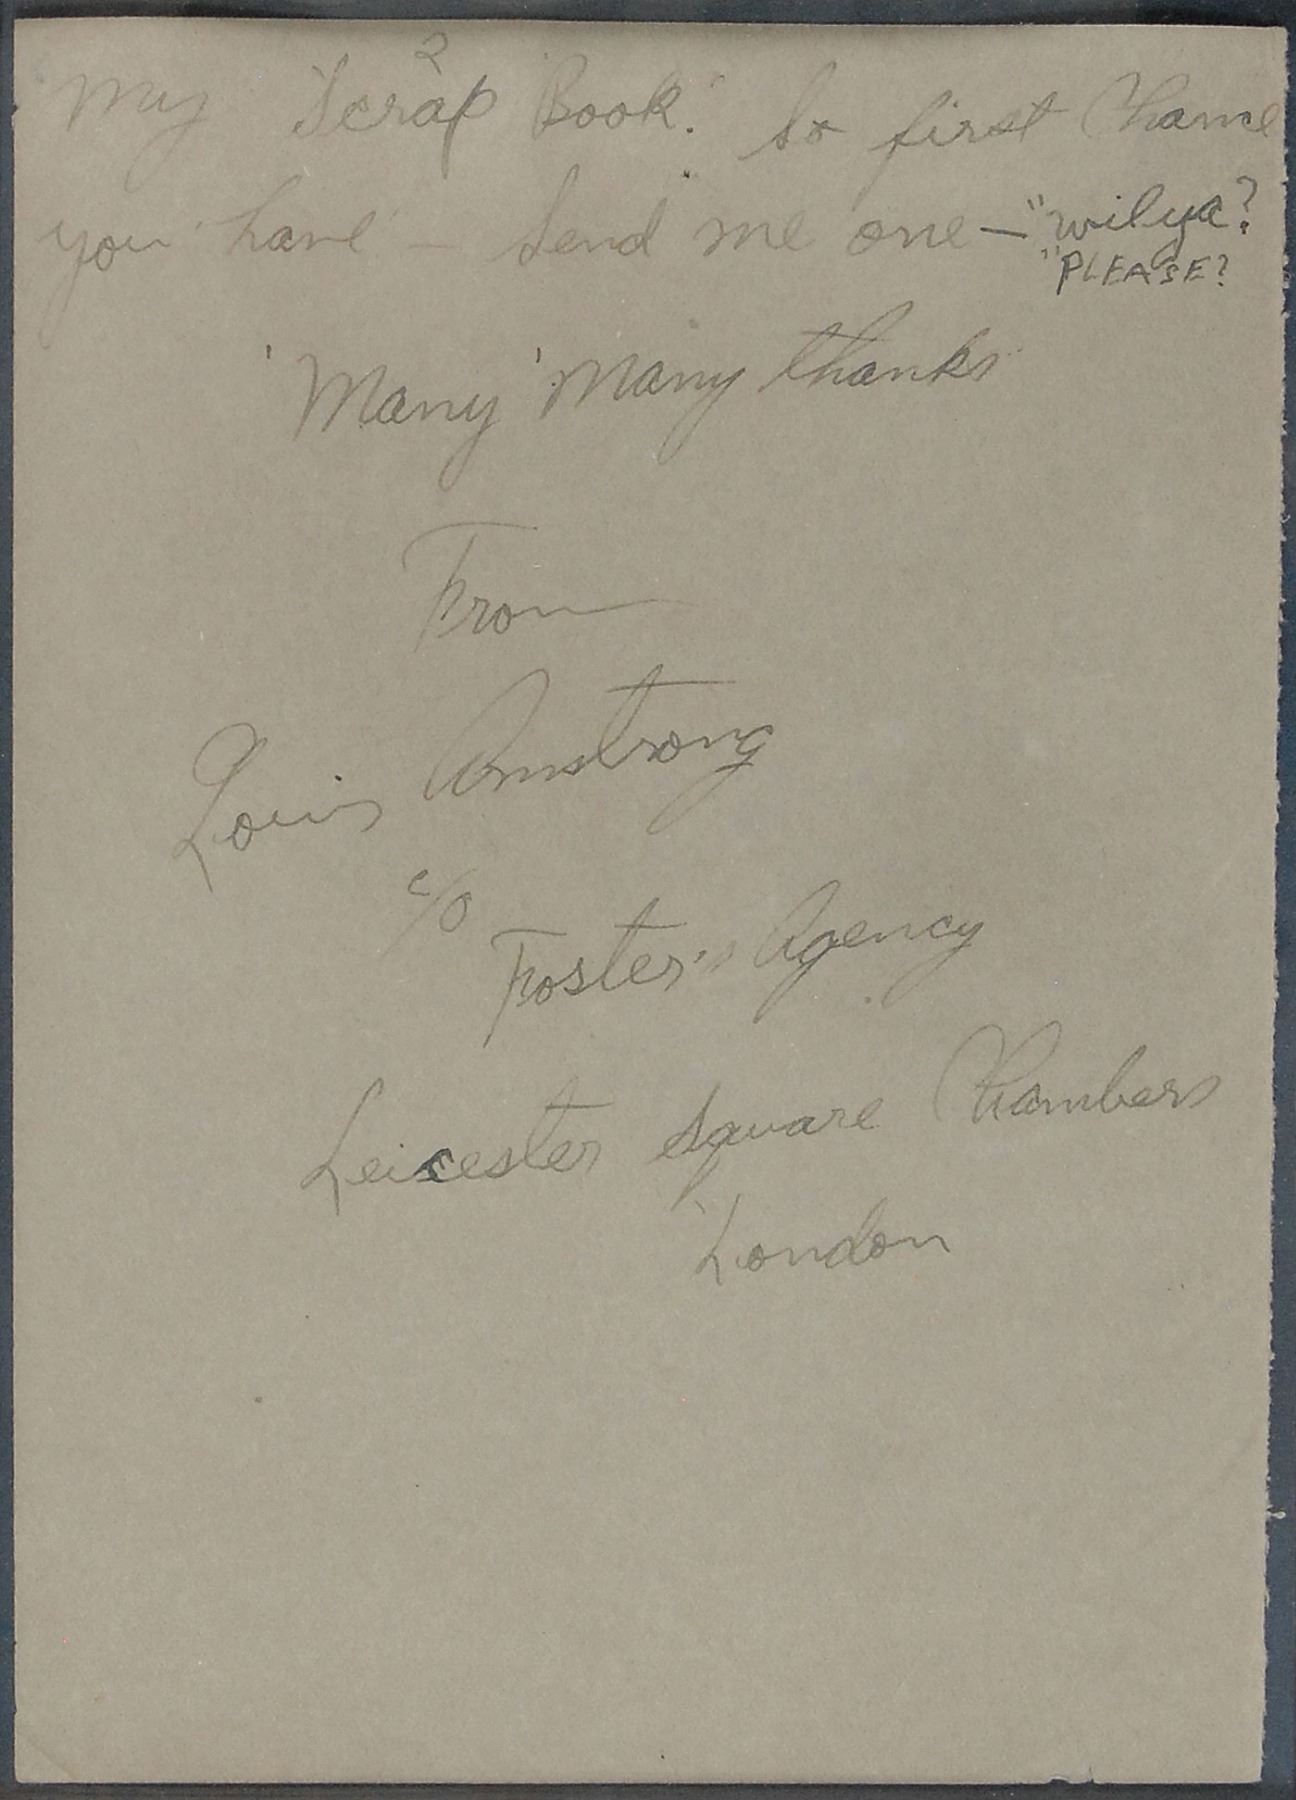 2
my 'Scrap Book.' So first Chance
you have – Send me one – "wilya?
"PLEASE?
'Many 'Many thanks
From
Louis Armstrong
c/o
Foster's Agency
Leicester Square Chambers
'London